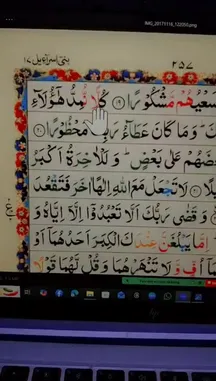 IMG_20171116_122050.png
بنی اسرآءیل ۱۷
۲۵۷
سَعْیُهُمْ مَّشْكُوْرًا ﴿۱۹﴾ كُلًّا نُّمِدُّ هٰۤؤُلَآءِ
وَ مَا كَانَ عَطَآءُ رَبِّكَ مَحْظُوْرًا ﴿۲۰﴾
بَعْضَهُمْ عَلٰى بَعْضٍ ؕ وَ لَلْاٰخِرَةُ اَكْبَرُ
لَا تَجْعَلْ مَعَ اللّٰهِ اِلٰهًا اٰخَرَ فَتَقْعُدَ
وَ قَضٰى رَبُّكَ اَلَّا تَعْبُدُوْۤا اِلَّاۤ اِیَّاهُ وَ
اِمَّا یَبْلُغَنَّ عِنْدَكَ الْكِبَرَ اَحَدُهُمَاۤ اَوْ
اُفٍّ وَّ لَا تَنْهَرْهُمَا وَ قُلْ لَّهُمَا قَوْلًا